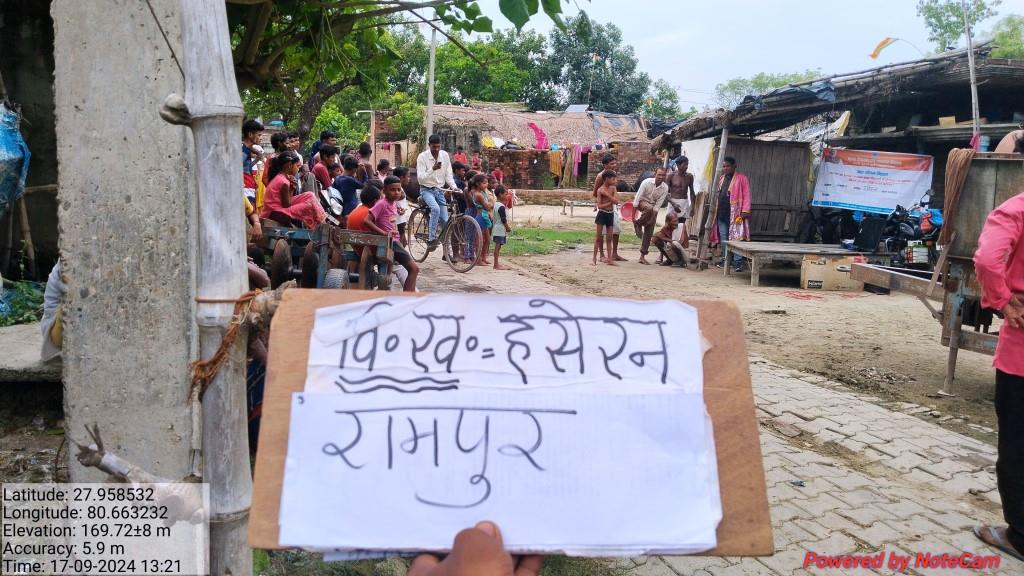 वि॰ख॰=हसेरन
रामपुर
Latitude: 27.958532
Longitude: 80.663232
Elevation: 169.72±8 m
Accuracy: 5.9 m
Time: 17-09-2024 13:21
Powered by NoteCam